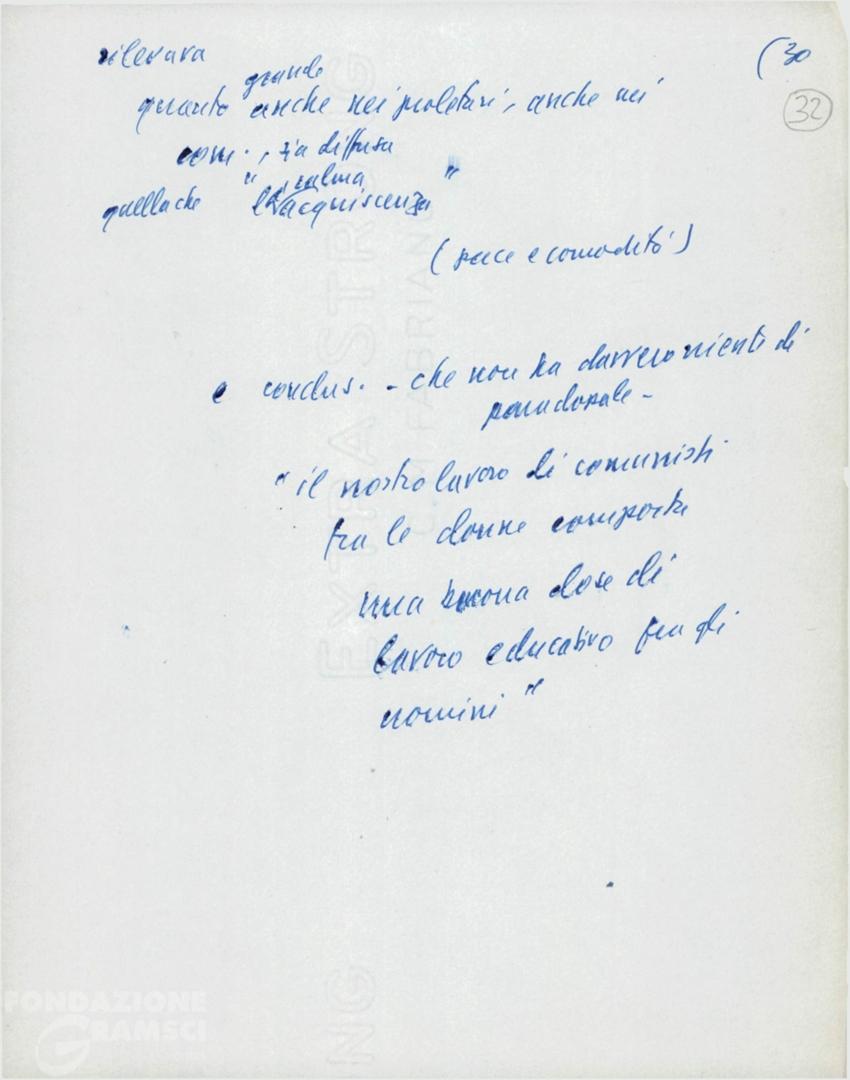 (30
32
rilevava
grande
quanto anche nei proletari, anche nei
com., sia diffusa
quella che " la calma acquiscenza "
(pace e comodità)
e conclus. - che non ha davvero niente di
paradossale -
" il nostro lavoro di comunisti
fra le donne comporta
una buona dose di
lavoro educativo fra gli
uomini "
EXTRA STRONG
C.M. FABRIANO
NG
FONDAZIONE
GRAMSCI